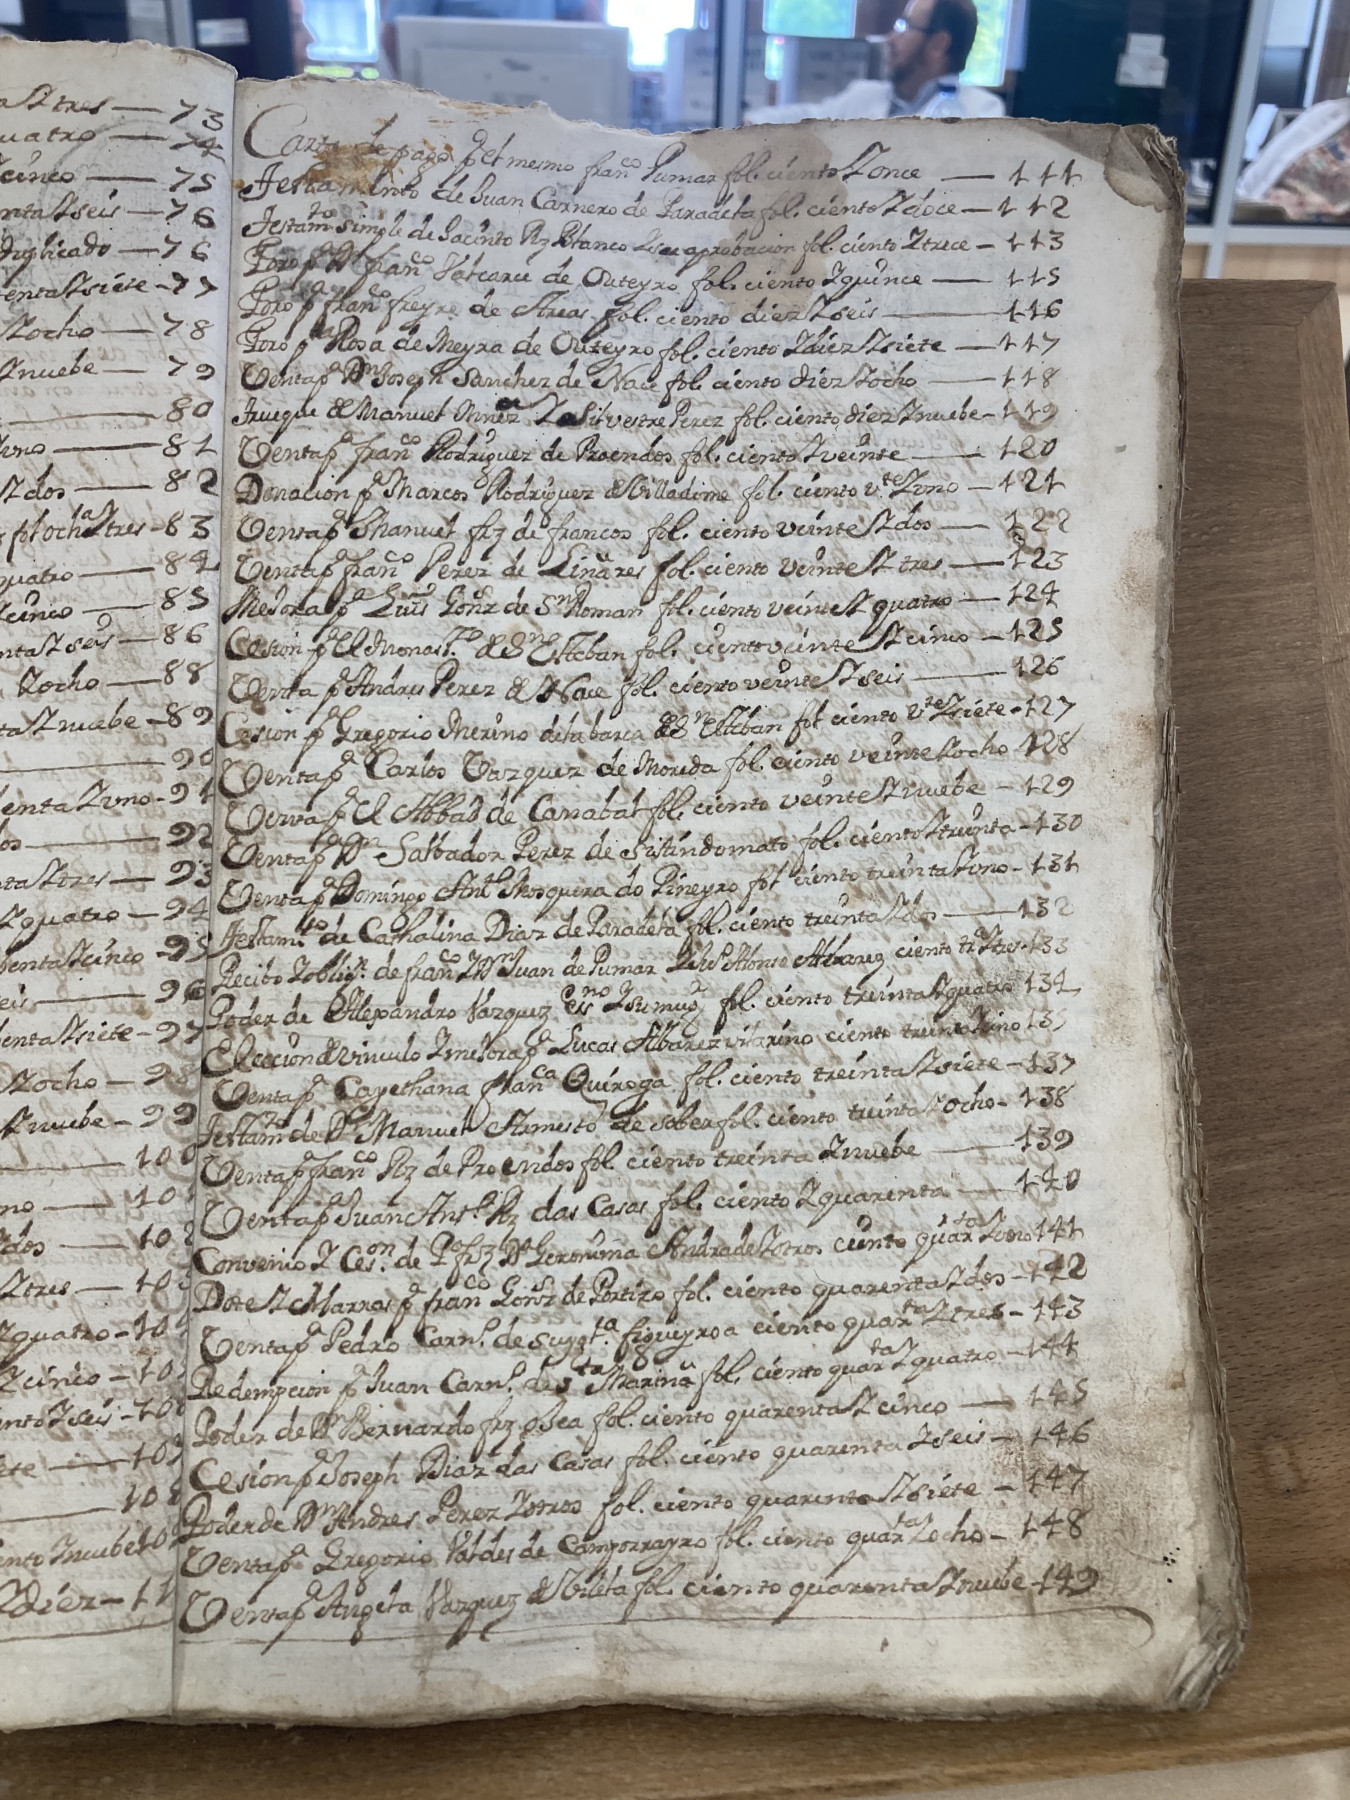 a Y tres — 73
uatro — 74
cinco — 75
nta Y seis — 76
duplicado — 76
enta Y siete - 77
Y ocho — 78
Y nuebe — 79
— 80
Y vno — 81
Y dos — 82
fol och.ta Y tres - 83
quatro — 84
cinco — 85
nta Y seis — 86
Y ocho — 88
ta Y nuebe - 89
— 90
enta Y vno - 91
os — 92
nta Y tres — 93
Y quatro — 94
enta Y cinco - 95
eis — 96
enta Y siete - 97
Y ocho — 98
Y nuebe - 99
— 100
no — 10
Y dos — 102
Y tres — 10
Y quatro - 10
Y cinco — 10
ento Y seis - 10
ete — 10
— 10
ento Y nuebe 10
Y diez - 11
Carta de pago pr el mesmo fran.co Pumar fol. ciento Y once — 111
Testamento de Juan Carnero de Paradela fol. ciento Y doce — 112
Testam.to simple de Jacinto Rz Blanco Y su aprobacion fol. ciento Y trece — 113
Foro pr Dn fran.co Valcarce de Outeyro fol. ciento Y quince — 115
Foro pr fran.co freyre de Areas fol. ciento diez Y seis — 116
Foro pr Rosa de Meyra de Outeyro fol. ciento Y diez Y siete — 117
Venta pr Dn Joseph Sanchez de Nace fol. ciento diez Y ocho — 118
Trueque de Manuel Y Silvestre Perez fol. ciento diez Y nuebe - 119
Venta pr fran.co Rodriguez de Proendos fol. ciento Y veinte — 120
Donacion pr Marcos Rodriguez de Villadime fol. ciento v.te Y vno — 121
Venta pr Manuel frz de francos fol. ciento veinte Y dos — 122
Venta pr fran.co Perez de Liñares fol. ciento veinte Y tres — 123
Mejora pr Luis Gonz de Sn Roman fol. ciento veinte Y quatro — 124
Cesion pr El Monast.o de Sn Esteban fol. ciento veinte Y cinco — 125
Venta pr Andres Perez de Nace fol. ciento veinte Y seis — 126
Cesion pr Gregorio Merino de la barca de Sn Esteban fol ciento v.te Y siete - 127
Venta pr Carlos Vazquez de Moreda fol. ciento veinte Y ocho 128
Venta pr El Abbad de Canabal fol. ciento veinte Y nuebe — 129
Venta pr Dn Salbador Perez de Sistindomato fol. ciento Y treinta - 130
Venta pr Domingo Ant.o Mosquera do Pineyro fol ciento treinta Y vno - 131
Testam.to de Cathalina Diaz de Paradela fol. ciento treinta Y dos — 132
Recibo Y oblig.n de fran.co Y Dn Juan de Pumar Alonso Albarez ciento tr.ta Y tres - 133
Poder de Allexandro Vazquez Es.no Y su mug.r fol. ciento treinta Y quatro 134
Eleccion de vinculo Y mejora pr Lucas Albarez vilarino ciento treinta Y cinco 135
Venta pr Cayethana fran.ca Quiroga fol. ciento treinta Y siete — 137
Testam.to de Dn Manuel Armesto de sober fol. ciento treinta Y ocho - 138
Venta pr fran.co Rz de Proendos fol. ciento treinta Y nuebe — 139
Venta pr Juan Ant.o Rz das Casas fol. ciento Y quarenta — 140
Convenio Y Ces.on de P.o frz Da Geronima Andrade Y otros ciento quar.ta Y vno 141
Dote Y Marras pr fran.co Gonz de Portizo fol. ciento quarenta Y dos - 142
Venta pr Pedro Carn.o de figueyroa ciento quar.ta Y tres - 143
Redempcion pr Juan Carn.o de S.ta Marina fol. ciento quar.ta Y quatro — 144
Poder de Dn Bernardo frz Bea fol. ciento quarenta Y cinco — 145
Cesion pr Joseph Diaz das Casas fol. ciento quarenta Y seis — 146
Poder de Dn Andres Perez Y otros fol. ciento quarenta Y siete — 147
Venta pr Gregorio Valdes de Camporrayro fol. ciento quar.ta Y ocho — 148
Venta pr Angela Vazquez de Vilela fol. ciento quarenta Y nuebe - 149